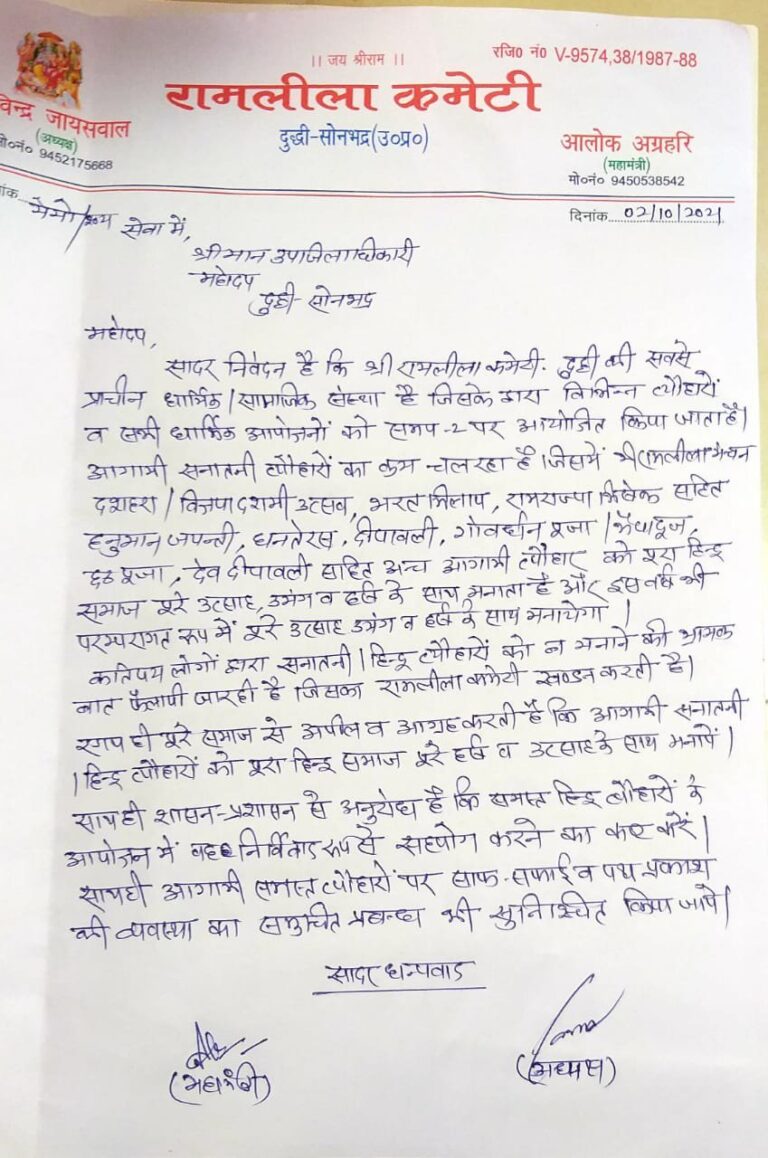 ।। जय श्रीराम ।।
रजि0 नं0 V-9574,38/1987-88
रामलीला कमेटी
दुद्धी-सोनभद्र(उ०प्र०)
विन्द्र जायसवाल
(अध्यक्ष)
मो०नं० 9452175668
आलोक अग्रहरि
(महामंत्री)
मो०नं० 9450538542
दिनांक 02/10/2021
सेवा में,
श्रीमान उपजिलाधिकारी
महोदय
दुद्धी-सोनभद्र
महोदय,
सादर निवेदन है कि श्री रामलीला कमेटी. दुद्धी की सबसे
प्राचीन धार्मिक/सामाजिक संस्था है जिसके द्वारा विभिन्न त्यौहारों
व सभी धार्मिक आयोजनों को समय-2 पर आयोजित किया जाता है।
आगामी सनातनी त्यौहारों का क्रम चल रहा है। जिसमें श्री रामलीला मंचन
दशहरा/विजयादशमी उत्सव, भरत मिलाप, रामराज्याभिषेक सहित
हनुमान जयन्ती, धनतेरस, दीपावली, गोवर्धन पूजा/भैयादूज,
छठ पूजा, देव दीपावली सहित अन्य आगामी त्यौहार को पूरा हिन्दू
समाज पूरे उत्साह, उमंग व हर्ष के साथ मनाता है और इस वर्ष भी
परम्परागत रूप में पूरे उत्साह उमंग व हर्ष के साथ मनायेगा।
कतिपय लोगों द्वारा सनातनी/हिन्दू त्यौहारों को न मनाने की भ्रामक
बात फैलायी जा रही है जिसका रामलीला कमेटी खण्डन करती है।
साथ ही पूरे समाज से अपील व आग्रह करती है कि आगामी सनातनी
/हिन्दू त्यौहारों को पूरा हिन्दू समाज पूरे हर्ष व उत्साह के साथ मनायें।
साथ ही शासन-प्रशासन से अनुरोध है कि समस्त हिन्दू त्यौहारों के
आयोजन में वह निर्विवाद रूप से सहयोग करने का कष्ट करें।
साथ ही आगामी समस्त त्यौहारों पर साफ-सफाई व पथ-प्रकाश
की व्यवस्था का समुचित प्रबन्ध भी सुनिश्चित किया जाये।
सादर धन्यवाद
(महामंत्री)
(अध्यक्ष)